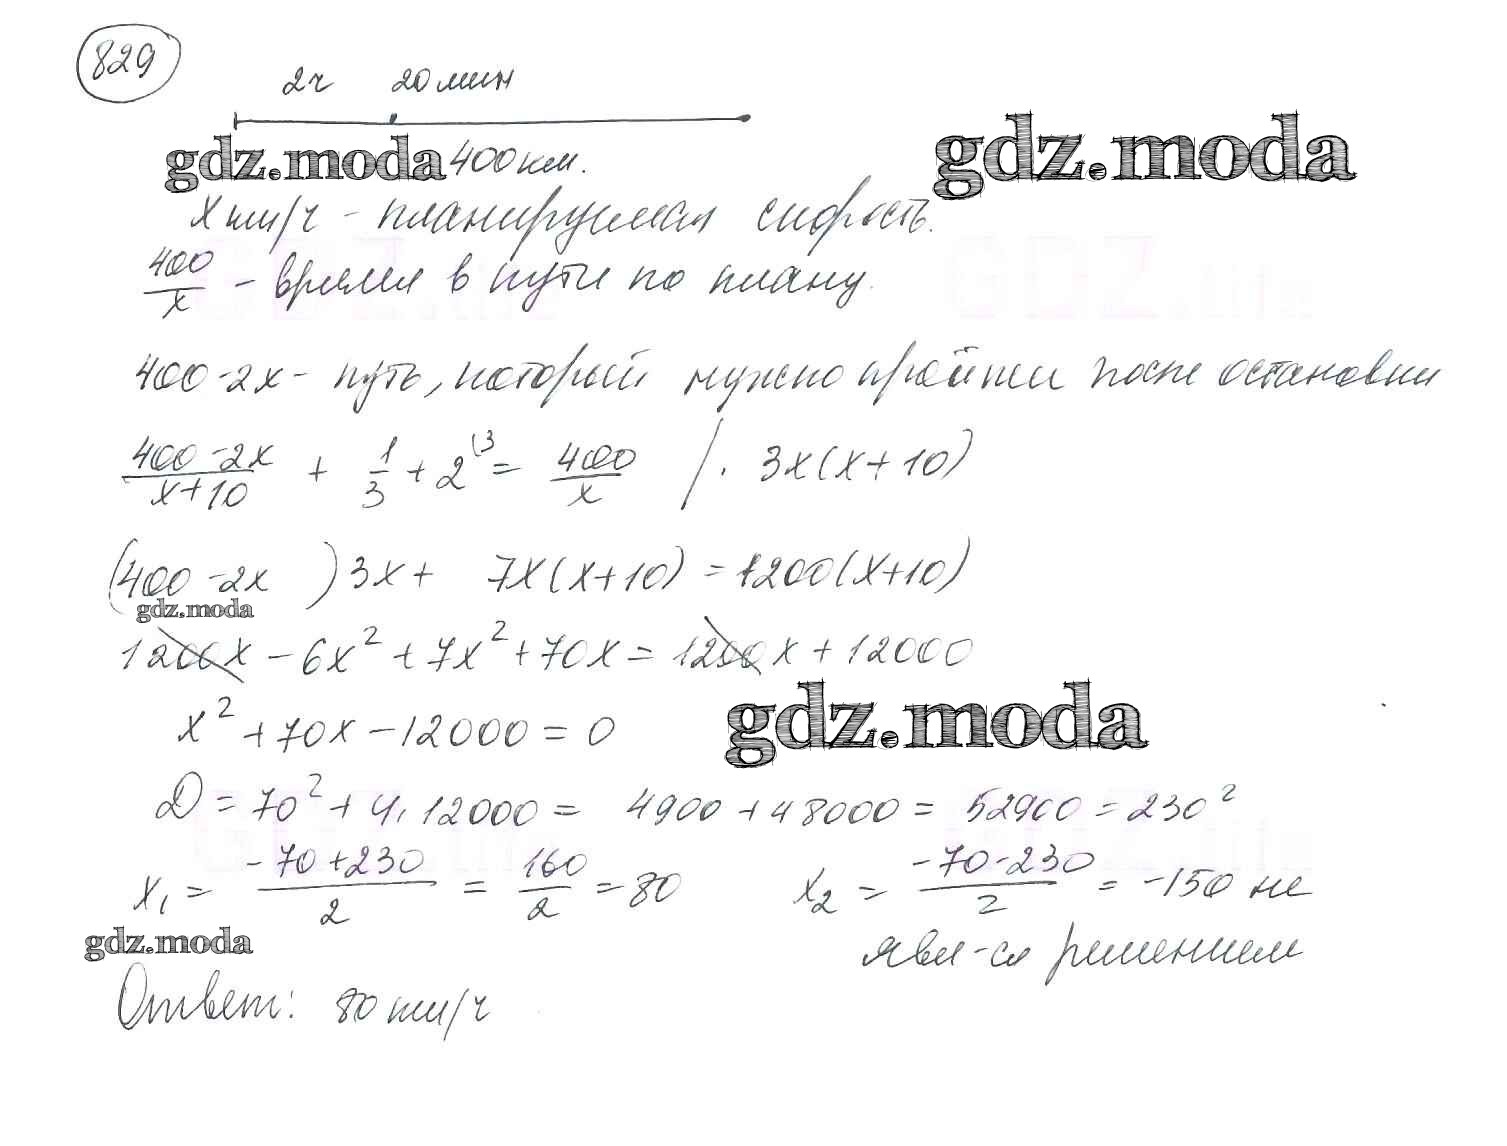 829
2ч 20 мин
gdz.moda 400 км. gdz.moda
x км/ч - планируемая скорость.
400/x - время в пути по плану.
400-2x - путь, который нужно пройти после остановки
(400-2x)/(x+10) + 1/3 + 2^(3 = 400/x /· 3x(x+10)
(400-2x )3x + 7x(x+10) = 1200(x+10)
gdz.moda
1200x - 6x² + 7x² + 70x = 1200x + 12000
x² + 70x - 12000 = 0
gdz.moda
D = 70² + 4·12000 = 4900 + 48000 = 52900 = 230²
x₁ = (-70+230)/2 = 160/2 = 80 x₂ = (-70-230)/2 = -150 не
явл-ся решением
gdz.moda
Ответ: 80 км/ч